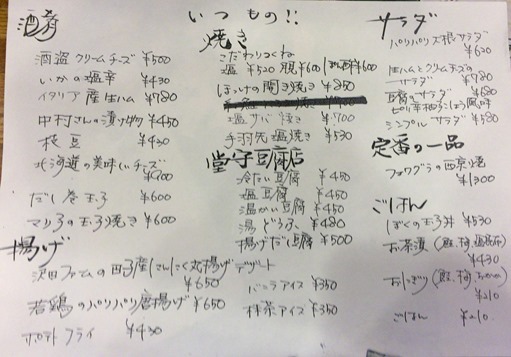 いつもの!!
酒肴
酒盗クリームチーズ ¥500
いかの塩辛 ¥430
イタリア産生ハム ¥780
中村さんの漬け物 ¥450
枝豆 ¥430
北海道の美味しいチーズ
¥900
だし巻玉子 ¥600
マリ子の玉子焼き ¥600
揚げ
ファームの 産にんにく丸揚げ
¥650
若鶏のパリパリ唐揚げ ¥650
ポテトフライ ¥430
焼き
こだわりつくね
塩 ¥520 月見 ¥600 ¥600
ほっけの開き焼き ¥850
塩サバ焼き ¥700
手羽先塩焼き ¥530
堂守豆腐店
冷たい豆腐 ¥450
塩豆腐 ¥450
温かい豆腐 ¥450
湯どうふ ¥480
揚げだし豆腐 ¥500
デザート
バニラアイス ¥350
抹茶アイス ¥350
サラダ
パリパリ大根サラダ
¥620
生ハムとクリームチーズの
サラダ ¥780
豆腐のサラダ ¥680
ピリ辛 風味
シンプルサラダ ¥580
定番の一品
フォアグラの西京焼
¥1300
ごはん
ぼくの玉子丼 ¥530
お茶漬(鮭,梅,塩昆布)
¥430
おにぎり(鮭,梅,おかか)
¥210
ごはん ¥210